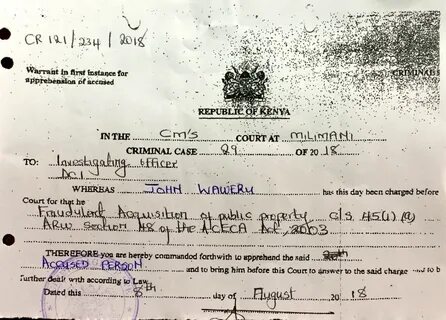 CR 121/234/2018
Warrant in first instance for
apprehension of accused
CRIMINAL
REPUBLIC OF KENYA
IN THE CM's COURT AT MILIMANI
CRIMINAL CASE 29 OF 2018
TO: Investigating officer
DCI
WHEREAS JOHN WAWERU has this day been charged before
Court for that he Fraudulent Acquisition of public property C/S 45(1)(a)
ARW section 48 of the ACECA Act, 2003
THEREFORE you are hereby commanded forthwith to apprehend the said
ACCUSED PERSON and to bring him before this Court to answer to the said charge and to b
further dealt with according to Law.
Dated this 8th day of August 2018